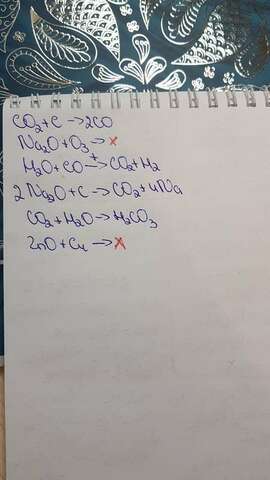 CO₂+C→2CO
Na₂O+O₃→×
H₂O+CO→⁺CO₂+H₂
2Na₂O+C→CO₂+4Na
CO₂+H₂O→H₂CO₃
ZnO+Cu→×